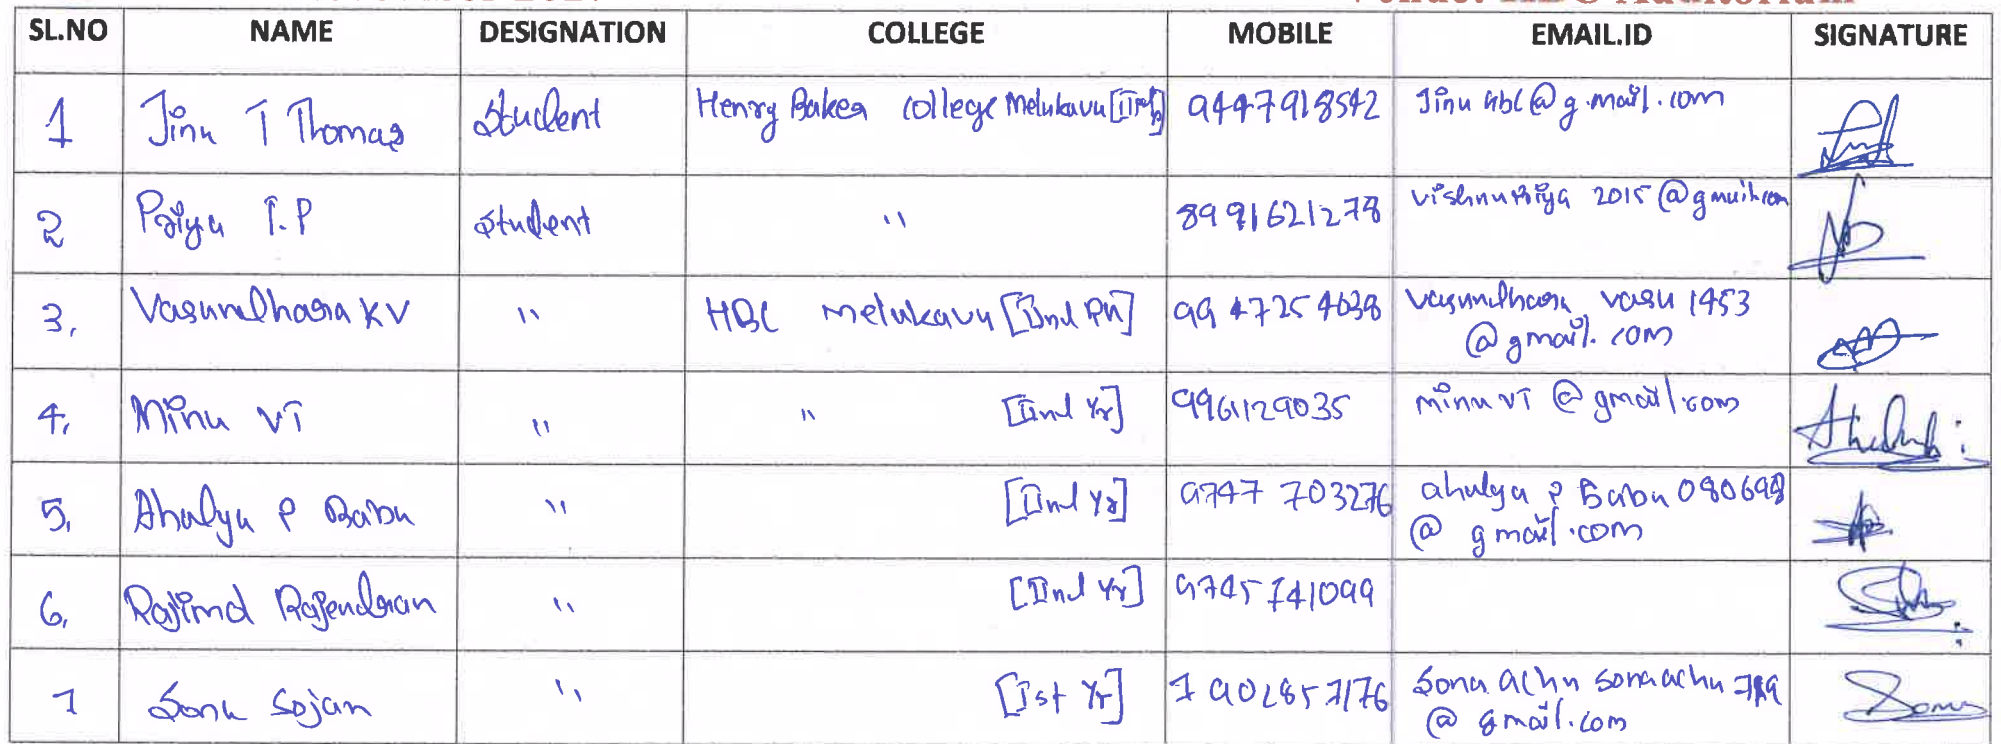 SL.NO NAME DESIGNATION COLLEGE MOBILE EMAIL.ID SIGNATURE
1 Jinu T Thomas Student Henry Baker College Melukavu 9447918542 Jinu abc@g.mail.com
2 Priya T.P Student " 8991621278 vishnupriya 2015@gmail.com
3, Vasundhara KV " HBC Melukavu [IInd 9947254638 vasundhara vasu 1453
@gmail.com
4, Minu VT " " [IInd Yr] 996129035 minu VT @gmail.com
5, Ahalya P Babu " [IInd Yr] 9747 703276 ahalya P Babu
@ gmail.com
6, Rajendran " [IInd Yr] 9745741099
7 Sona Sojan " [Ist Yr] 7902857176 Sona achu sonaachu
@ gmail.com Sona